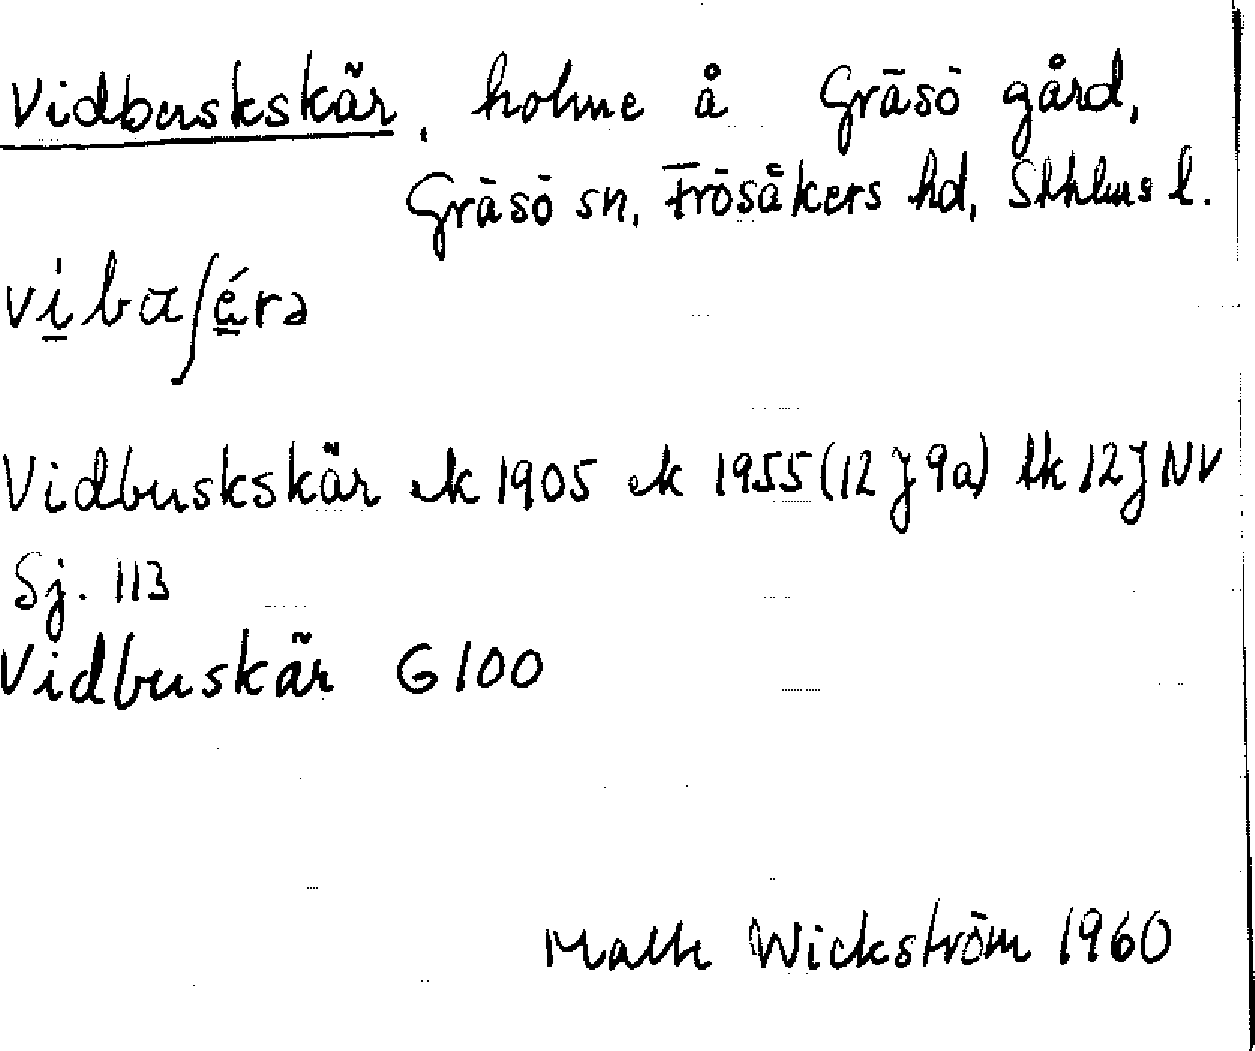 Vidbuskskär, holme å Gräsö gård,
Gräsö sn, Frösåkers hd, Sthlms l.
vibaʃérə
Vidbuskskär ek 1905 ek 1955 (12 J 9a) tk 12J NV
Sj. 113
Vidbuskär G 100
Math Wickström 1960